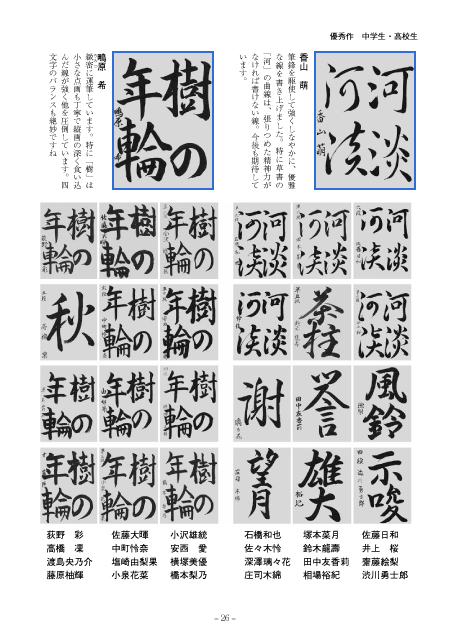 優秀作　中学生・高校生
香山　萌
筆鋒を駆使して強くしなやかに、優雅
な線を書き上げました。特に草書の
「河」の曲線は、張りつめた精神力が
なければ書けない線。今後も期待して
います。
河淡
河淡
香山萌
鴫原　希
緻密に運筆しています。特に「樹」は
小さな点画も丁寧で縦画の深く食い込
んだ線が強く他を圧倒しています。四
文字のバランスも絶妙ですね
樹の
年輪
河淡
河淡
河淡
河淡
河淡
河淡
樹の
年輪
樹の
年輪
樹の
年輪
河淡
河淡
茶柱
河淡
河淡
樹の
年輪
樹の
年輪
秋
風鈴
誉
田中友香莉
謝
樹の
年輪
樹の
年輪
樹の
年輪
示唆
雄大
裕紀
望月
樹の
年輪
樹の
年輪
樹の
年輪
佐藤日和
井上　桜
齋藤絵梨
渋川勇士郎
塚本菜月
鈴木龍壽
田中友香莉
相場裕紀
石橋和也
佐々木怜
深澤璃々花
庄司木綿
小沢雄統
安西　愛
横塚美優
橋本梨乃
佐藤大暉
中町怜奈
塩崎由梨果
小泉花菜
荻野　彩
高橋　凜
渡島央乃介
藤原柚輝
– 26 –